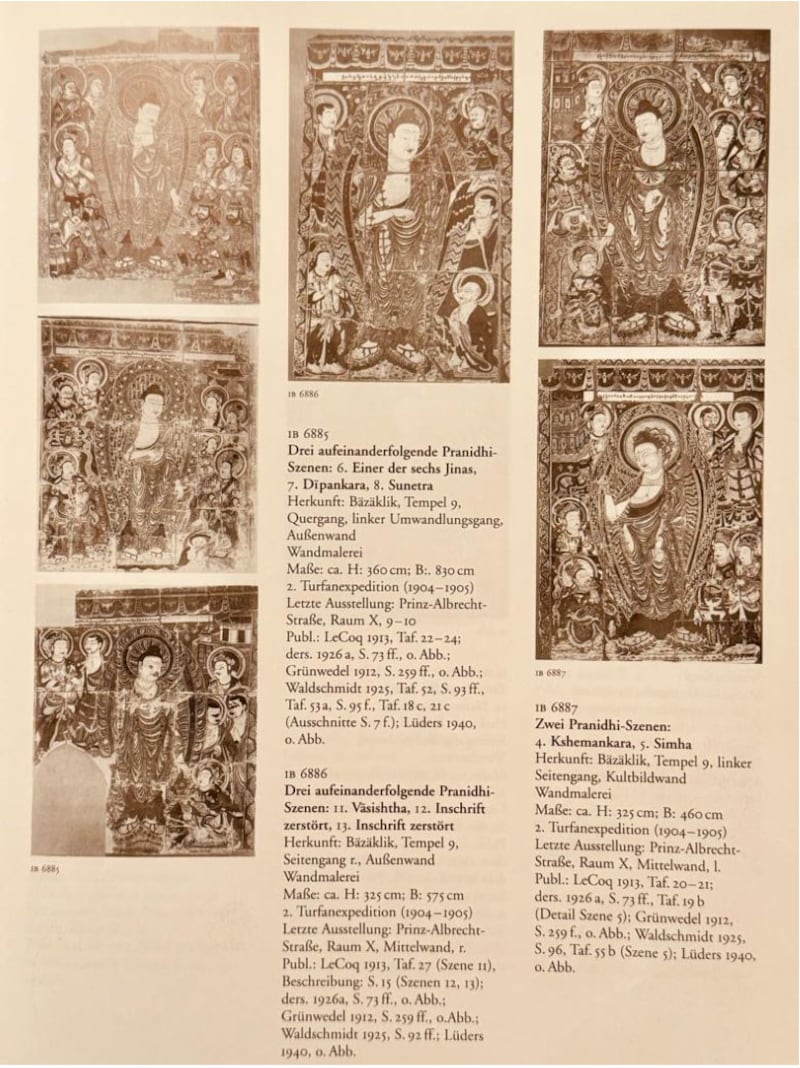 IB 6885
IB 6886
IB 6885
Drei aufeinanderfolgende Pranidhi-
Szenen: 6. Einer der sechs Jinas,
7. Dīpankara, 8. Sunetra
Herkunft: Bäzäklik, Tempel 9,
Quergang, linker Umwandlungsgang,
Außenwand
Wandmalerei
Maße: ca. H: 360 cm; B:. 830 cm
2. Turfanexpedition (1904–1905)
Letzte Ausstellung: Prinz-Albrecht-
Straße, Raum X, 9–10
Publ.: LeCoq 1913, Taf. 22–24;
ders. 1926 a, S. 73 ff., o. Abb.;
Grünwedel 1912, S. 259 ff., o. Abb.;
Waldschmidt 1925, Taf. 52, S. 93 ff.,
Taf. 53 a, S. 95 f., Taf. 18 c, 21 c
(Ausschnitte S. 7 f.); Lüders 1940,
o. Abb.
IB 6886
Drei aufeinanderfolgende Pranidhi-
Szenen: 11. Vāsishtha, 12. Inschrift
zerstört, 13. Inschrift zerstört
Herkunft: Bäzäklik, Tempel 9,
Seitengang r., Außenwand
Wandmalerei
Maße: ca. H: 325 cm; B: 575 cm
2. Turfanexpedition (1904–1905)
Letzte Ausstellung: Prinz-Albrecht-
Straße, Raum X, Mittelwand, r.
Publ.: LeCoq 1913, Taf. 27 (Szene 11),
Beschreibung: S. 15 (Szenen 12, 13);
ders. 1926a, S. 73 ff., o. Abb.;
Grünwedel 1912, S. 259 ff., o.Abb.;
Waldschmidt 1925, S. 92 ff.; Lüders
1940, o. Abb.
IB 6887
IB 6887
Zwei Pranidhi-Szenen:
4. Kshemankara, 5. Simha
Herkunft: Bäzäklik, Tempel 9, linker
Seitengang, Kultbildwand
Wandmalerei
Maße: ca. H: 325 cm; B: 460 cm
2. Turfanexpedition (1904–1905)
Letzte Ausstellung: Prinz-Albrecht-
Straße, Raum X, Mittelwand, l.
Publ.: LeCoq 1913, Taf. 20–21;
ders. 1926 a, S. 73 ff., Taf. 19 b
(Detail Szene 5); Grünwedel 1912,
S. 259 f., o. Abb.; Waldschmidt 1925,
S. 96, Taf. 55 b (Szene 5); Lüders 1940,
o. Abb.